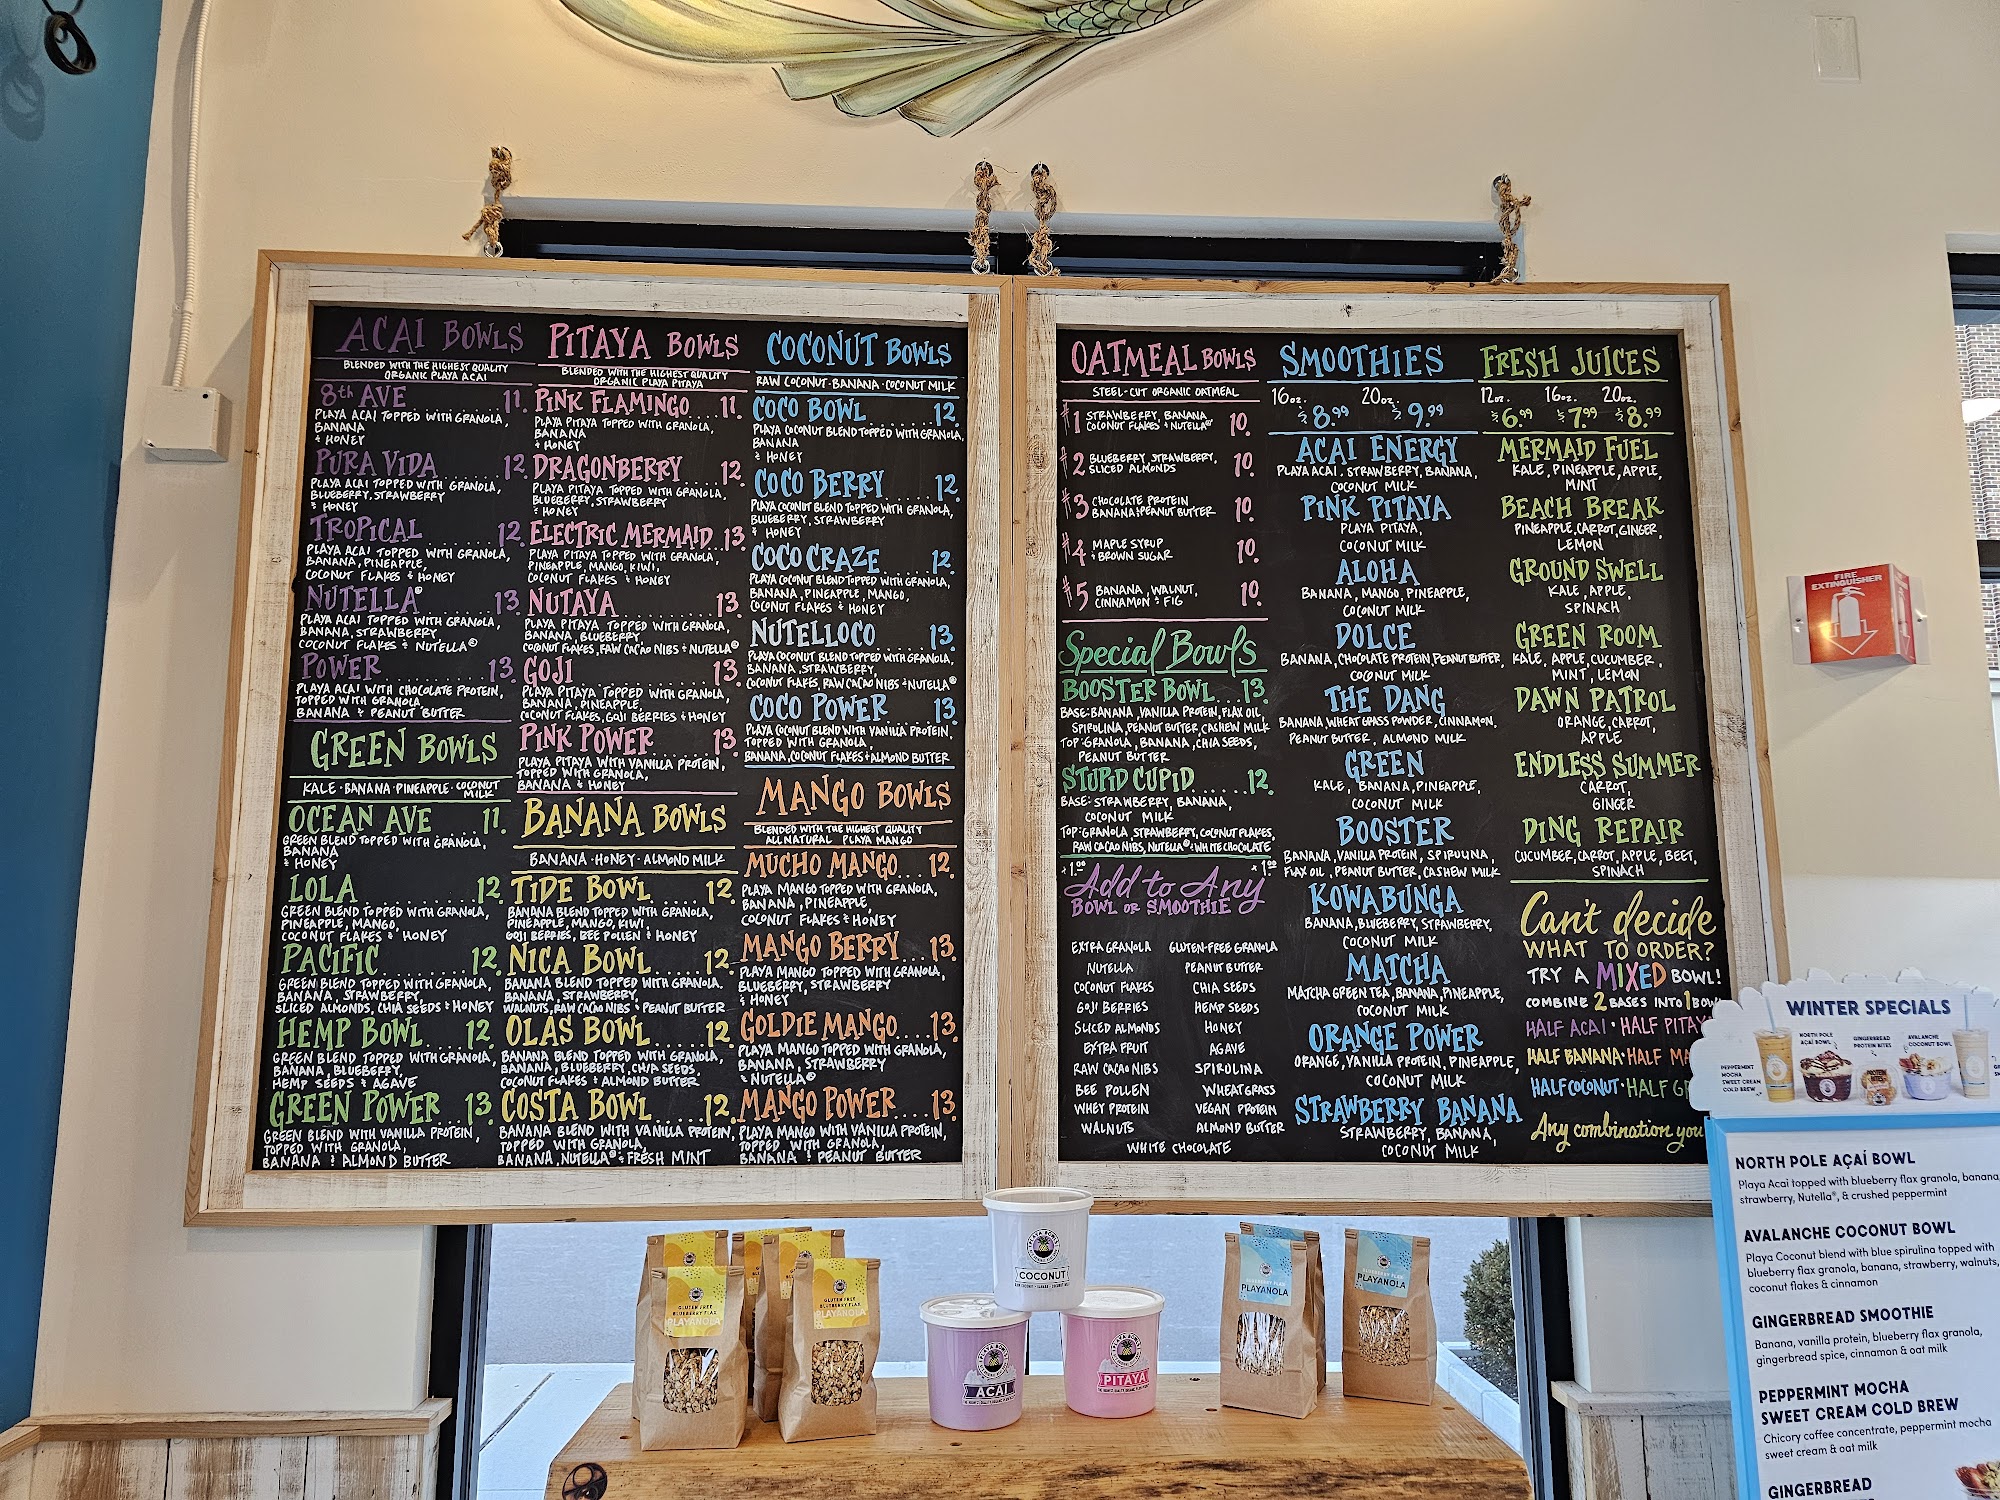 ACAI BOWLS
BLENDED WITH THE HIGHEST QUALITY
ORGANIC PLAYA ACAI
8th AVE 11.
PLAYA ACAI TOPPED WITH GRANOLA,
BANANA
& HONEY
PURA VIDA 12.
PLAYA ACAI TOPPED WITH GRANOLA,
BLUEBERRY, STRAWBERRY
& HONEY
TROPICAL 12.
PLAYA ACAI TOPPED WITH GRANOLA,
BANANA, PINEAPPLE,
COCONUT FLAKES & HONEY
NUTELLA® 13.
PLAYA ACAI TOPPED WITH GRANOLA,
BANANA, STRAWBERRY
COCONUT FLAKES & NUTELLA®
POWER 13.
PLAYA ACAI WITH CHOCOLATE PROTEIN,
TOPPED WITH GRANOLA
BANANA & PEANUT BUTTER
GREEN BOWLS
KALE · BANANA · PINEAPPLE · COCONUT
MILK
OCEAN AVE 11.
GREEN BLEND TOPPED WITH GRANOLA,
BANANA
& HONEY
LOLA 12.
GREEN BLEND TOPPED WITH GRANOLA,
PINEAPPLE, MANGO,
COCONUT FLAKES & HONEY
PACIFIC 12.
GREEN BLEND TOPPED WITH GRANOLA,
BANANA, STRAWBERRY,
SLICED ALMONDS, CHIA SEEDS & HONEY
HEMP BOWL 12.
GREEN BLEND TOPPED WITH GRANOLA,
BANANA, BLUEBERRY,
HEMP SEEDS & AGAVE
GREEN POWER 13.
GREEN BLEND WITH VANILLA PROTEIN,
TOPPED WITH GRANOLA,
BANANA & ALMOND BUTTER
PITAYA BOWLS
BLENDED WITH THE HIGHEST QUALITY
ORGANIC PLAYA PITAYA
PINK FLAMINGO 11.
PLAYA PITAYA TOPPED WITH GRANOLA,
BANANA
& HONEY
DRAGONBERRY 12.
PLAYA PITAYA TOPPED WITH GRANOLA,
BLUEBERRY, STRAWBERRY
& HONEY
ELECTRIC MERMAID 13.
PLAYA PITAYA TOPPED WITH GRANOLA,
PINEAPPLE, MANGO, KIWI,
COCONUT FLAKES & HONEY
NUTAYA 13.
PLAYA PITAYA TOPPED WITH GRANOLA,
BANANA, BLUEBERRY,
COCONUT FLAKES, RAW CACAO NIBS & NUTELLA®
GOJI 13.
PLAYA PITAYA TOPPED WITH GRANOLA,
BANANA, PINEAPPLE,
COCONUT FLAKES, GOJI BERRIES & HONEY
PINK POWER 13.
PLAYA PITAYA WITH VANILLA PROTEIN,
TOPPED WITH GRANOLA,
BANANA & HONEY
BANANA BOWLS
BANANA · HONEY · ALMOND MILK
TIDE BOWL 12.
BANANA BLEND TOPPED WITH GRANOLA,
PINEAPPLE, MANGO, KIWI,
GOJI BERRIES, BEE POLLEN & HONEY
NICA BOWL 12.
BANANA BLEND TOPPED WITH GRANOLA,
BANANA, STRAWBERRY,
WALNUTS, RAW CACAO NIBS & PEANUT BUTTER
OLAS BOWL 12.
BANANA BLEND TOPPED WITH GRANOLA,
BANANA, BLUEBERRY, CHIA SEEDS,
COCONUT FLAKES & ALMOND BUTTER
COSTA BOWL 12.
BANANA BLEND WITH VANILLA PROTEIN,
TOPPED WITH GRANOLA,
BANANA, NUTELLA® & FRESH MINT
COCONUT BOWLS
RAW COCONUT · BANANA · COCONUT MILK
COCO BOWL 12.
PLAYA COCONUT BLEND TOPPED WITH GRANOLA,
BANANA
& HONEY
COCO BERRY 12.
PLAYA COCONUT BLEND TOPPED WITH GRANOLA,
BLUEBERRY, STRAWBERRY,
& HONEY
COCO CRAZE 12.
PLAYA COCONUT BLEND TOPPED WITH GRANOLA,
BANANA, PINEAPPLE, MANGO,
COCONUT FLAKES & HONEY
NUTELLOCO 13.
PLAYA COCONUT BLEND TOPPED WITH GRANOLA,
BANANA, STRAWBERRY,
COCONUT FLAKES, RAW CACAO NIBS & NUTELLA®
COCO POWER 13.
PLAYA COCONUT BLEND WITH VANILLA PROTEIN,
TOPPED WITH GRANOLA,
BANANA, COCONUT FLAKES & ALMOND BUTTER
MANGO BOWLS
BLENDED WITH THE HIGHEST QUALITY
ALL NATURAL PLAYA MANGO
MUCHO MANGO 12.
PLAYA MANGO TOPPED WITH GRANOLA,
BANANA, PINEAPPLE,
COCONUT FLAKES & HONEY
MANGO BERRY 13.
PLAYA MANGO TOPPED WITH GRANOLA,
BLUEBERRY, STRAWBERRY
& HONEY
GOLDIE MANGO 13.
PLAYA MANGO TOPPED WITH GRANOLA,
BANANA, STRAWBERRY
& NUTELLA®
MANGO POWER 13.
PLAYA MANGO WITH VANILLA PROTEIN,
TOPPED WITH GRANOLA,
BANANA & PEANUT BUTTER
OATMEAL BOWLS
STEEL-CUT ORGANIC OATMEAL
#1 STRAWBERRY, BANANA 10.
COCONUT FLAKES & NUTELLA®
#2 BLUEBERRY, STRAWBERRY, 10.
SLICED ALMONDS
#3 CHOCOLATE PROTEIN 10.
BANANA & PEANUT BUTTER
#4 MAPLE SYRUP 10.
& BROWN SUGAR
#5 BANANA, WALNUT, 10.
CINNAMON & FIG
Special Bowls
BOOSTER BOWL 13.
BASE: BANANA, VANILLA PROTEIN, FLAX OIL,
SPIRULINA, PEANUT BUTTER, CASHEW MILK
TOP: GRANOLA, BANANA, CHIA SEEDS,
PEANUT BUTTER
STUPID CUPID 12.
BASE: STRAWBERRY, BANANA,
COCONUT MILK
TOP: GRANOLA, STRAWBERRY, COCONUT FLAKES,
RAW CACAO NIBS, NUTELLA® & WHITE CHOCOLATE
+1.00 Add to Any +1.00
BOWL OR SMOOTHIE
EXTRA GRANOLA GLUTEN-FREE GRANOLA
NUTELLA PEANUT BUTTER
COCONUT FLAKES CHIA SEEDS
GOJI BERRIES HEMP SEEDS
SLICED ALMONDS HONEY
EXTRA FRUIT AGAVE
RAW CACAO NIBS SPIRULINA
BEE POLLEN WHEATGRASS
WHEY PROTEIN VEGAN PROTEIN
WALNUTS ALMOND BUTTER
WHITE CHOCOLATE
SMOOTHIES
16oz. 20oz.
$8.99 $9.99
ACAI ENERGY
PLAYA ACAI, STRAWBERRY, BANANA,
COCONUT MILK
PINK PITAYA
PLAYA PITAYA,
COCONUT MILK
ALOHA
BANANA, MANGO, PINEAPPLE,
COCONUT MILK
DOLCE
BANANA, CHOCOLATE PROTEIN, PEANUT BUTTER,
COCONUT MILK
THE DANG
BANANA, WHEATGRASS POWDER, CINNAMON,
PEANUT BUTTER, ALMOND MILK
GREEN
KALE, BANANA, PINEAPPLE,
COCONUT MILK
BOOSTER
BANANA, VANILLA PROTEIN, SPIRULINA,
FLAX OIL, PEANUT BUTTER, CASHEW MILK
KOWABUNGA
BANANA, BLUEBERRY, STRAWBERRY,
COCONUT MILK
MATCHA
MATCHA GREEN TEA, BANANA, PINEAPPLE,
COCONUT MILK
ORANGE POWER
ORANGE, VANILLA PROTEIN, PINEAPPLE,
COCONUT MILK
STRAWBERRY BANANA
STRAWBERRY, BANANA,
COCONUT MILK
FRESH JUICES
12oz. 16oz. 20oz.
$6.99 $7.99 $8.99
MERMAID FUEL
KALE, PINEAPPLE, APPLE,
MINT
BEACH BREAK
PINEAPPLE, CARROT, GINGER,
LEMON
GROUND SWELL
KALE, APPLE,
SPINACH
GREEN ROOM
KALE, APPLE, CUCUMBER,
MINT, LEMON
DAWN PATROL
ORANGE, CARROT,
APPLE
ENDLESS SUMMER
CARROT,
GINGER
DING REPAIR
CUCUMBER, CARROT, APPLE, BEET,
SPINACH
Can't decide
WHAT TO ORDER?
TRY A MIXED BOWL!
COMBINE 2 BASES INTO 1 BOWL
HALF ACAI · HALF PITAY
HALF BANANA · HALF MA
HALF COCONUT · HALF G
Any combination you
FIRE
EXTINGUISHER
WINTER SPECIALS
NORTH POLE
AÇAÍ BOWL
GINGERBREAD
PROTEIN BITES
AVALANCHE
COCONUT BOWL
PEPPERMINT
MOCHA
SWEET CREAM
COLD BREW
NORTH POLE AÇAÍ BOWL
Playa Acai topped with blueberry flax granola, banana,
strawberry, Nutella®, & crushed peppermint
AVALANCHE COCONUT BOWL
Playa Coconut blend with blue spirulina topped with
blueberry flax granola, banana, strawberry, walnuts,
coconut flakes & cinnamon
GINGERBREAD SMOOTHIE
Banana, vanilla protein, blueberry flax granola,
gingerbread spice, cinnamon & oat milk
PEPPERMINT MOCHA
SWEET CREAM COLD BREW
Chicory coffee concentrate, peppermint mocha
sweet cream & oat milk
GINGERBREAD
GLUTEN FREE
BLUEBERRY FLAX
PLAYANOLA
GLUTEN FREE
BLUEBERRY FLAX
PLAYANOLA
PLAYA BOWLS
COCONUT
PLAYA BOWLS
ACAI
PLAYA BOWLS
PITAYA
BLUEBERRY FLAX
PLAYANOLA
BLUEBERRY FLAX
PLAYANOLA